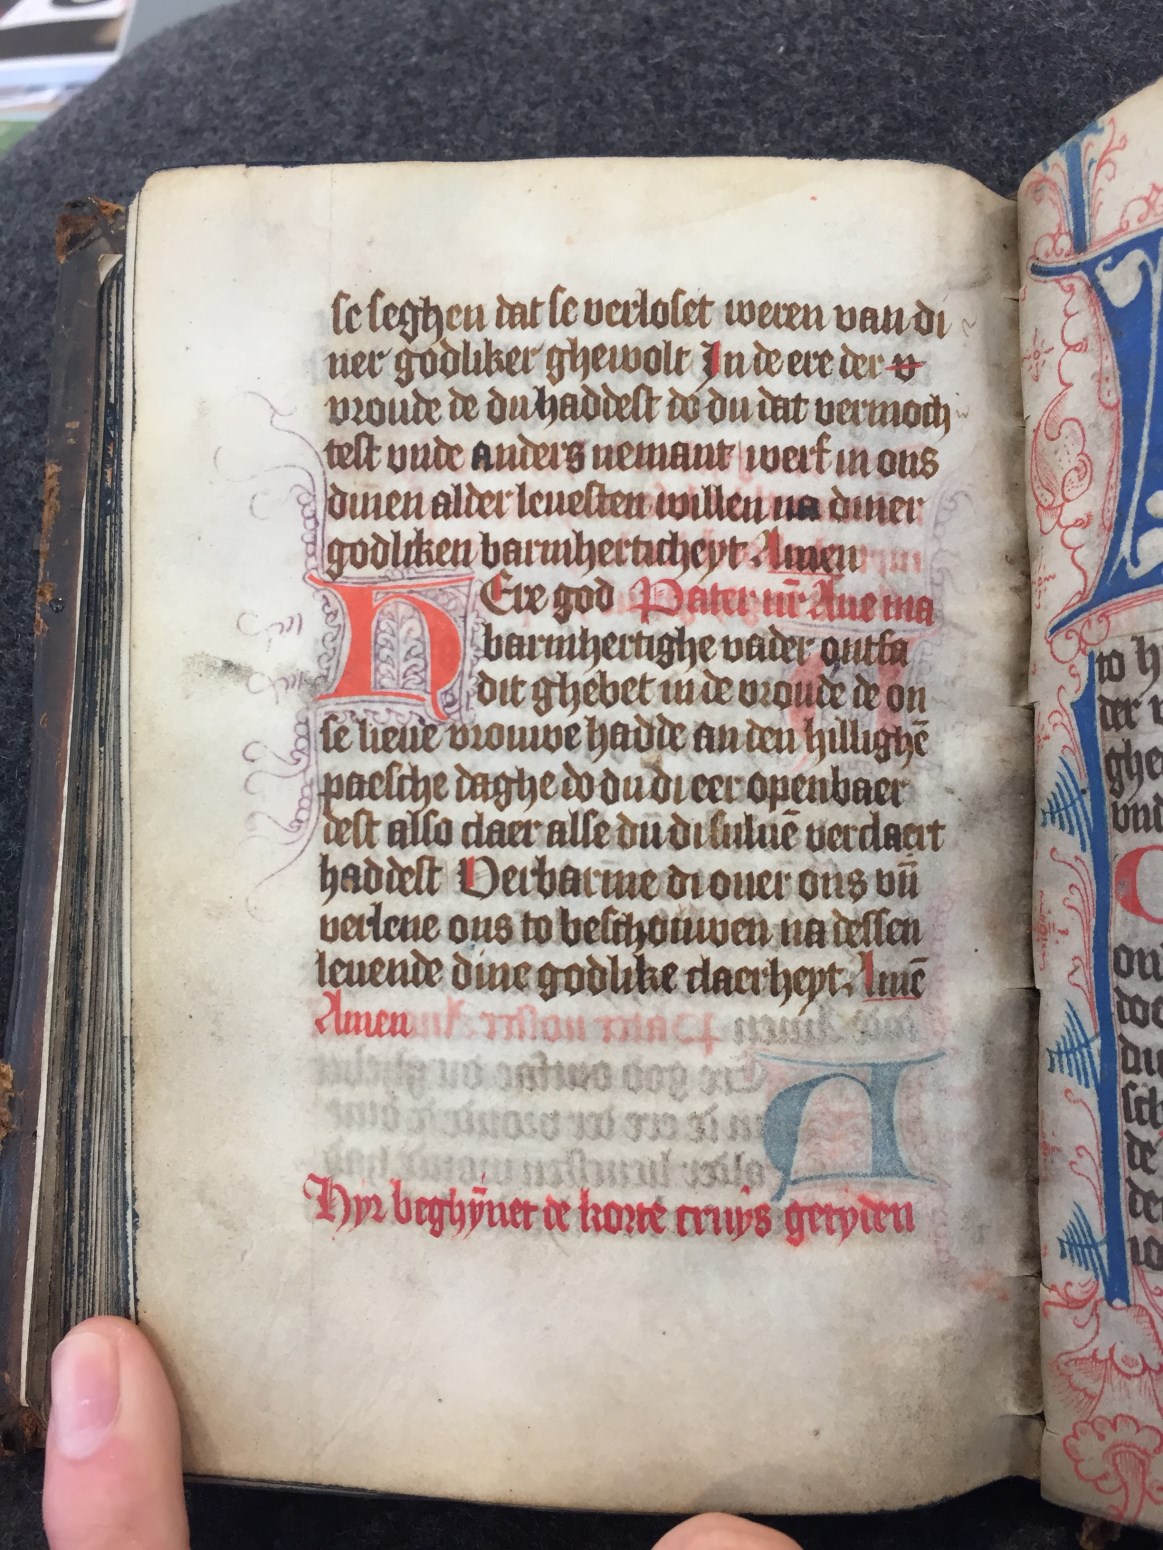 se seghen dat se verloset weren van di
ner godliker ghewolt In de ere der v
vroude de du haddest do du dat vermoch
test vnde anders nemant werf in ons
dinen alder leuesten willen na diner
godliken barmherticheyt Amen
HEre god Pater nr̄ Aue ma
barmhertighe vader ontfa
dit ghebet in de vroude de on
se lieue vrouwe hadde an den hillighē
paesche daghe do du di eer openbaer
dest also claer alse du di suluē verclaert
haddest Verbarme di ouer ons vn̄
verlene ons to beschouwen na dessen
leuende dine godlike claerheyt. Amē
Amen
Hyr beghȳnet de korte cruys getyden
to h
der
ghe
vnd
ou
doe
du
sch
de
de